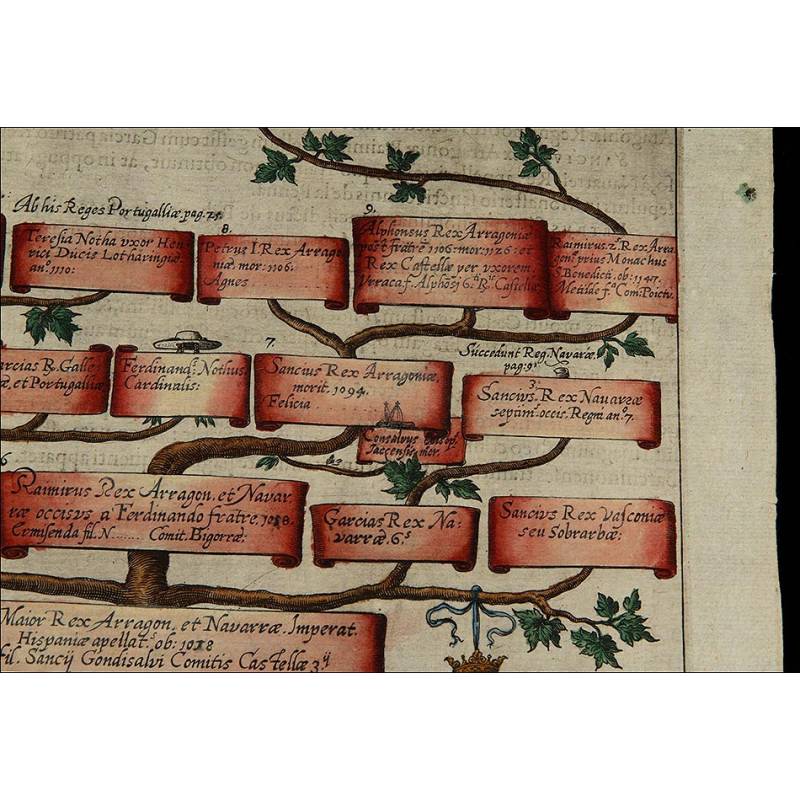 Ab his Reges Portugalliæ pag. 25.
Teresia Notha vxor Hen
rici Ducis Lotharingiæ
anº. 1110:
8.
Petrus I Rex Arrago
niæ. mor: 1106:
Agnes
9.
Alphonsus Rex Arragoniæ
post fratrē 1106: mor: 1126: et
Rex Castellæ per vxorem
Vrraca f. Alphōsi 6. Castellæ
Raimirus. 2. Rex Arra
gon. prius Monachus
S. Benedicti. ob: 1147.
Metilde fª. Com: Poictv.
arcias R. Galle
æ, et Portugalliæ
Ferdinand. Nothus.
Cardinalis:
7.
Sancius Rex Arragoniæ,
morit. 1094.
Felicia
Succedunt Reg. Navaræ.
pag. 9
3.
Sancivs. Rex Navaræ
septim. occis. Regni anº. 7.
Consalvus Episcop.
Jaccensis. mor.
6
Raimirus Rex Arragon. et Navar.
ræ occisvs a Ferdinando fratre. 1038.
Ermisenda fil. N........ Comit. Bigorræ:
Garcias Rex Na:
varræ. 6.s
Sancius Rex Vasconiæ
seu Sobrarbæ:
Maior Rex Arragon. et Navarræ. Imperat.
Hispaniæ apellat.s ob: 1038
fil. Sancij Gondisalvi Comitis Castellæ 3.ij